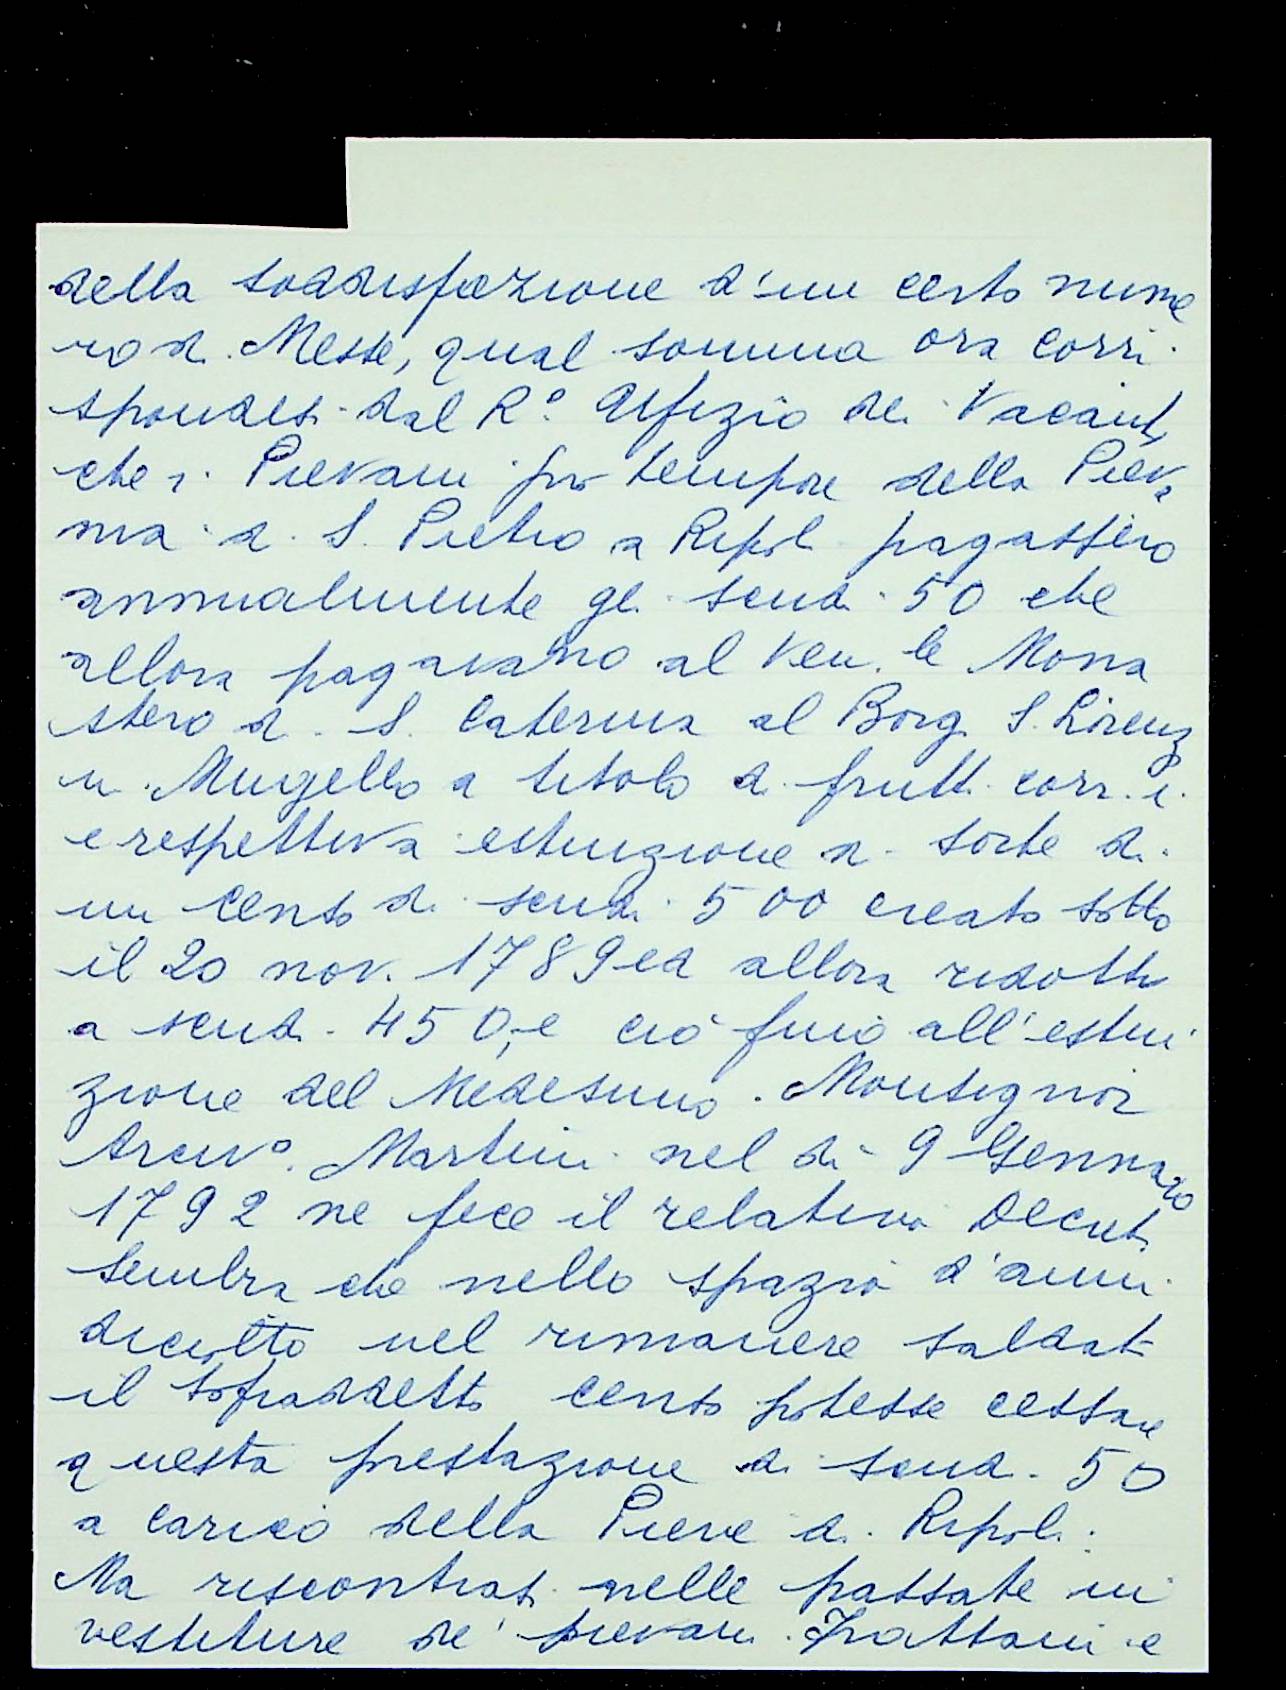 della soddisfazione d'un certo nume
ro di Messe, qual somma ora corri
spondesi dal R.º Uffizio dei Vacanti,
che i Pievani pro tempore della Pieva
nia di S. Pietro a Ripoli pagassero
annualmente gli scudi 50 che
allora pagavano al Ven.le Mona
stero di S. Caterina al Borgo S. Lorenzo
in Mugello a titolo di frutti corr.i
e respettiva estinzione di sorte di
un censo di scudi 500 creato sotto
il 20 nov. 1789 ed allora ridotto
a scudi 450, e ciò fino all'estin
zione del Medesimo. Monsignor
Arciv.º Martini nel dì 9 Gennaio
1792 ne fece il relativo Decreto
Sembra che nello spazio d'anni
diciotto nel rimanere saldato
il sopraddetto censo potesse cessare
questa prestazione di scudi 50
a carico della Pieve di Ripoli:
Ma riscontrasi nelle passate in
vestiture de' pievani e